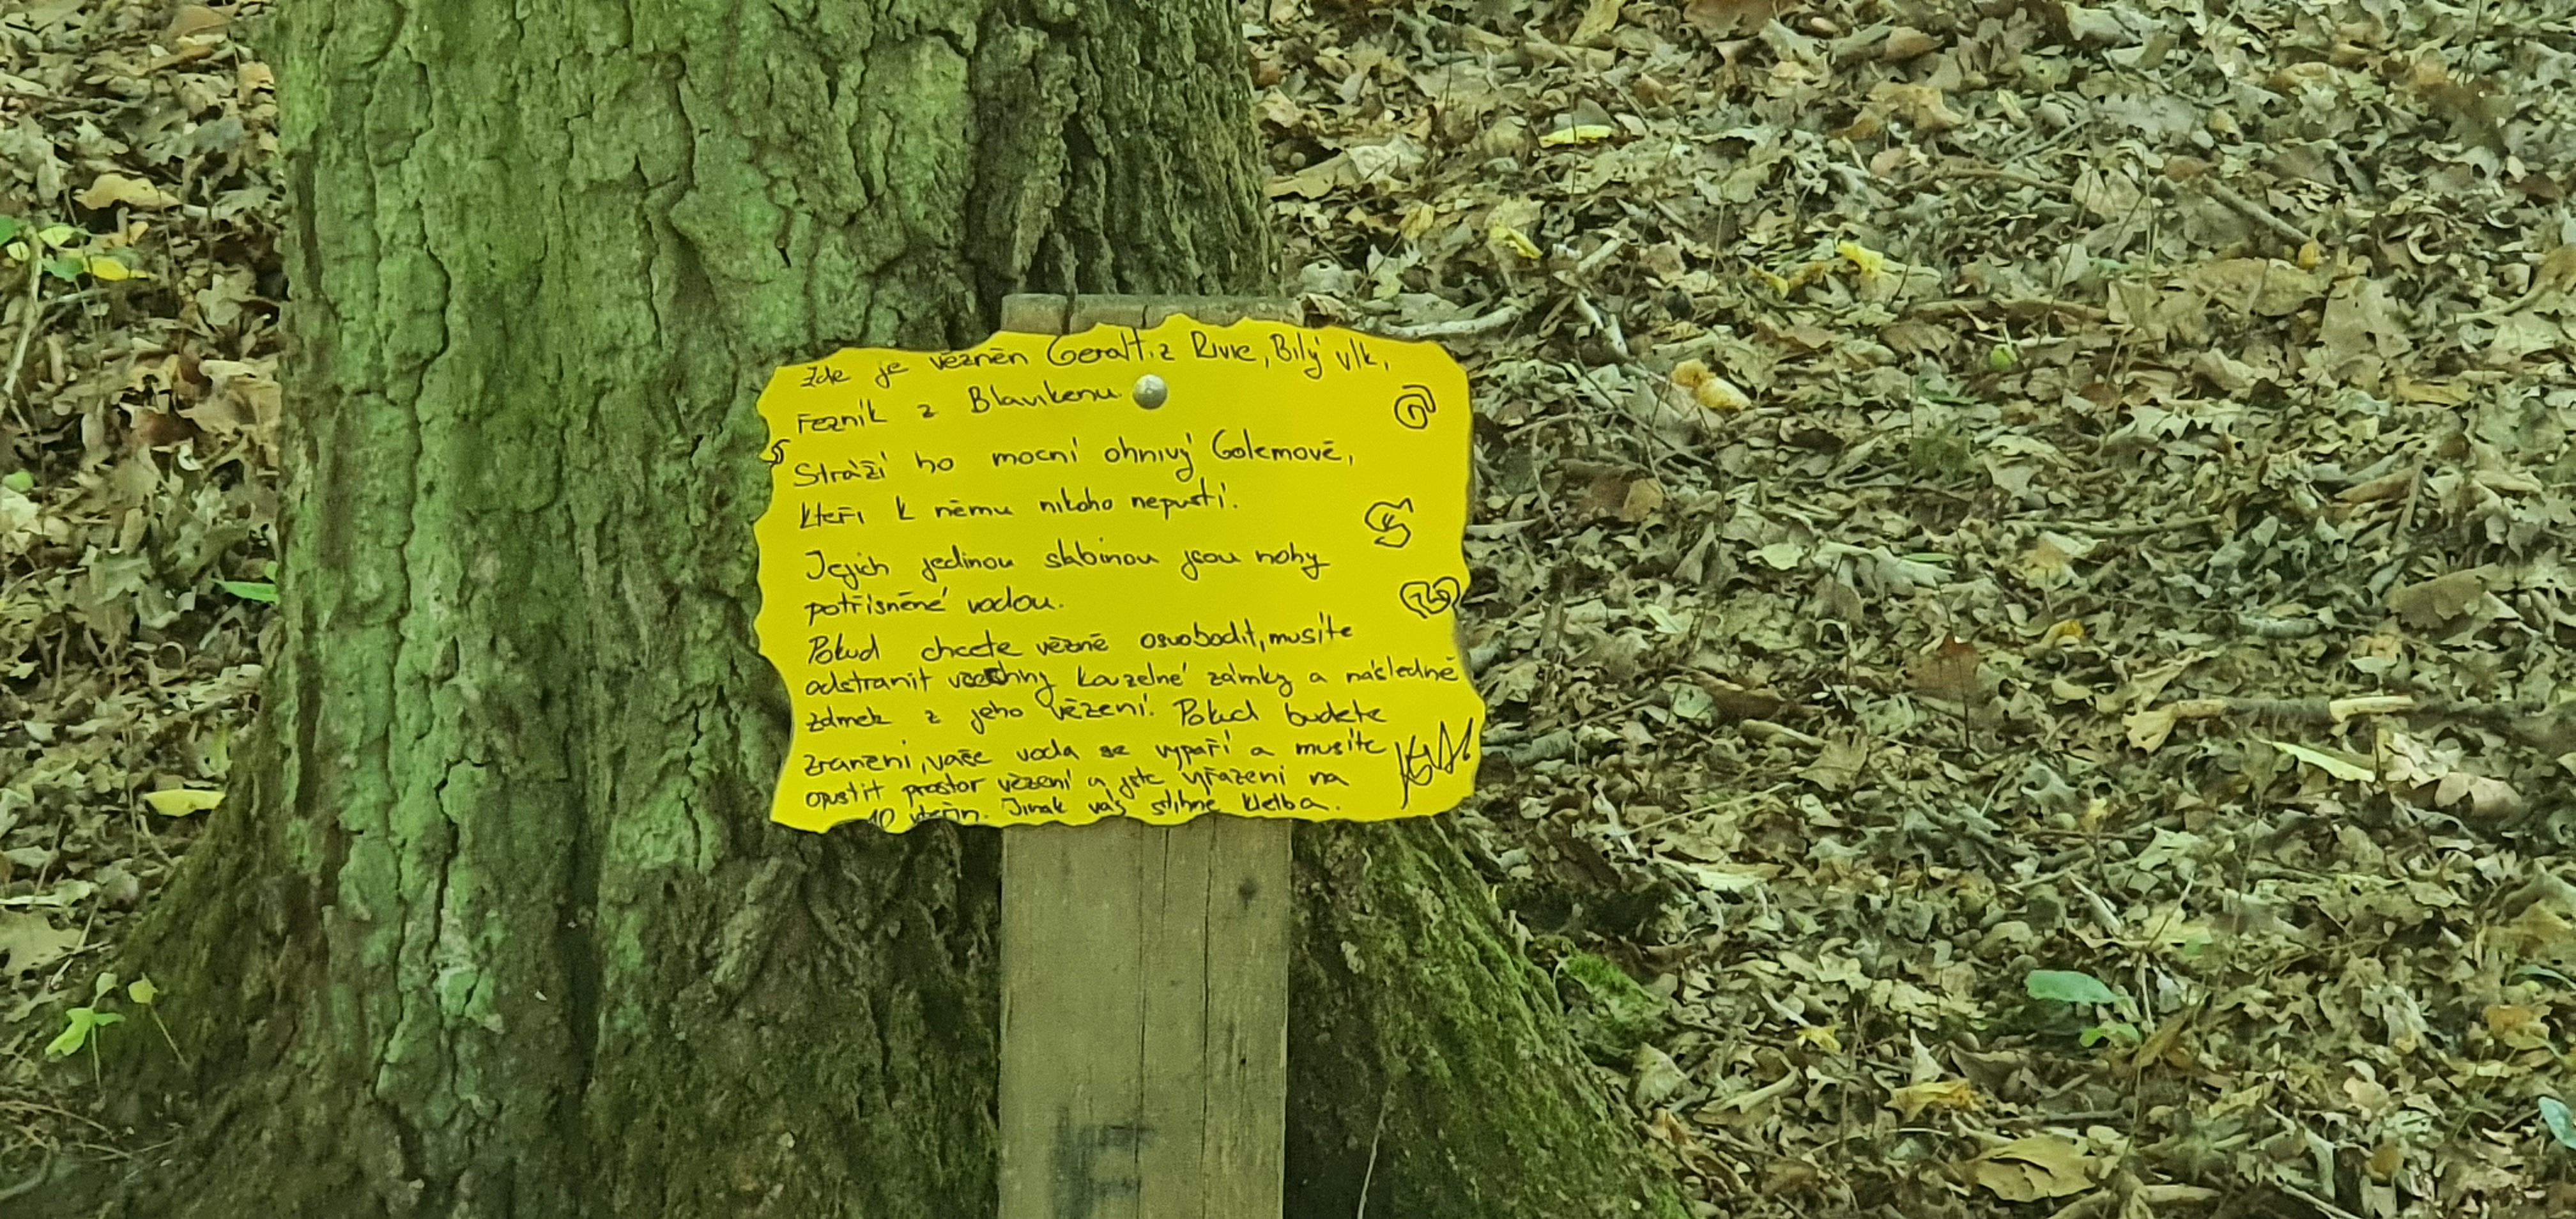 Zde je vězněn Geralt z Rivie, Bílý vlk,
Řezník z Blavikenu.
Stráží ho mocní ohnivý Golemové,
kteří k němu nikoho nepustí.
Jejich jedinou slabinou jsou nohy
potřísněné vodou.
Pokud chcete vězně osvobodit, musíte
odstranit všechny kouzelné zámky a následně
zámek z jeho vězení. Pokud budete
zranění, vaše voda se vypaří a musíte
opustit prostor vězení a jste vyřazeni na
10 vteřin. Jinak vás stihne kletba.
F